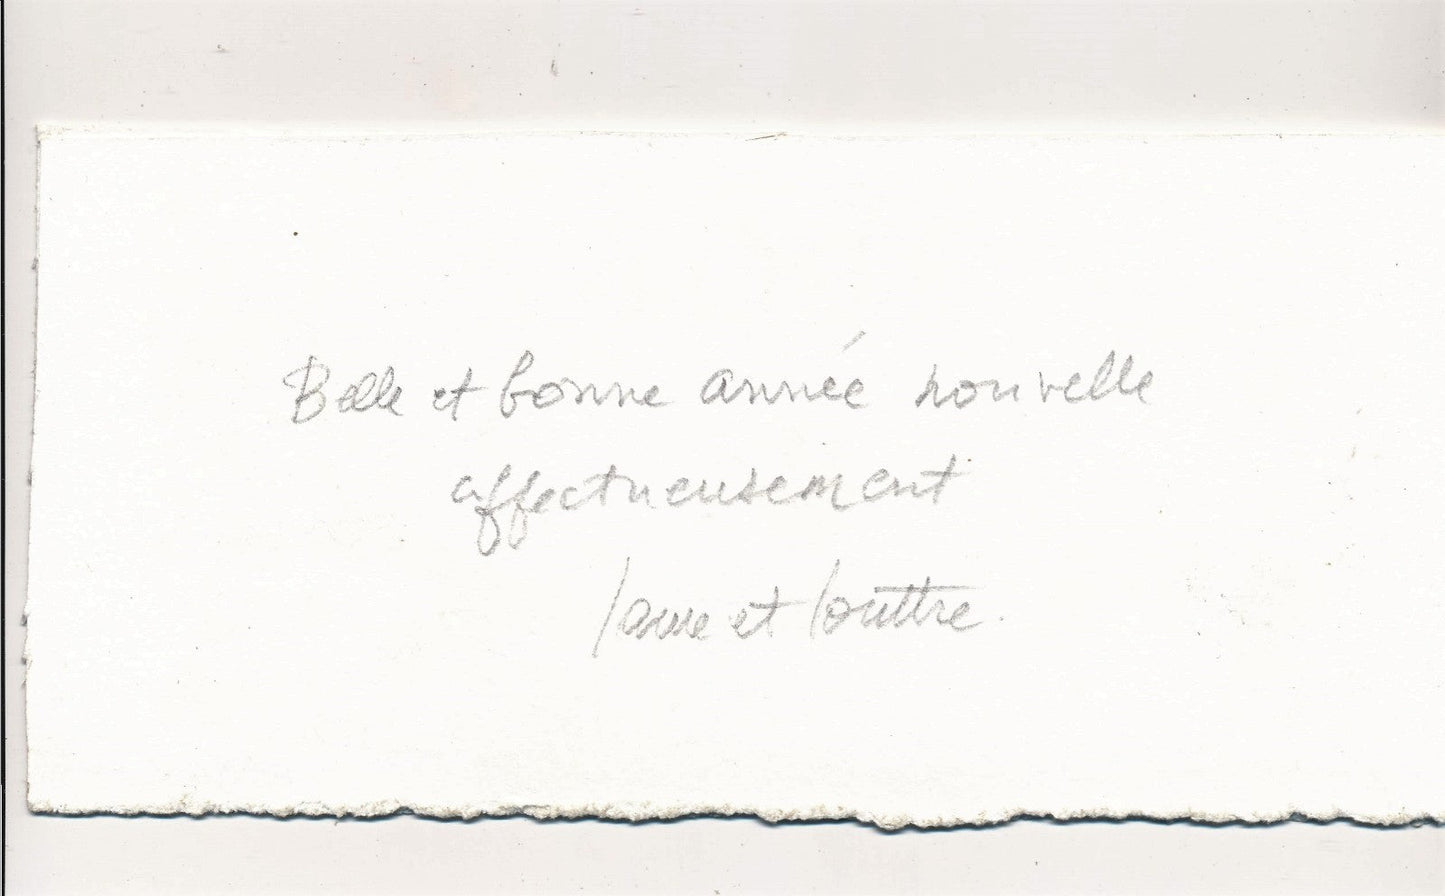 Belle et bonne année nouvelle
affectueusement
et Louttre.